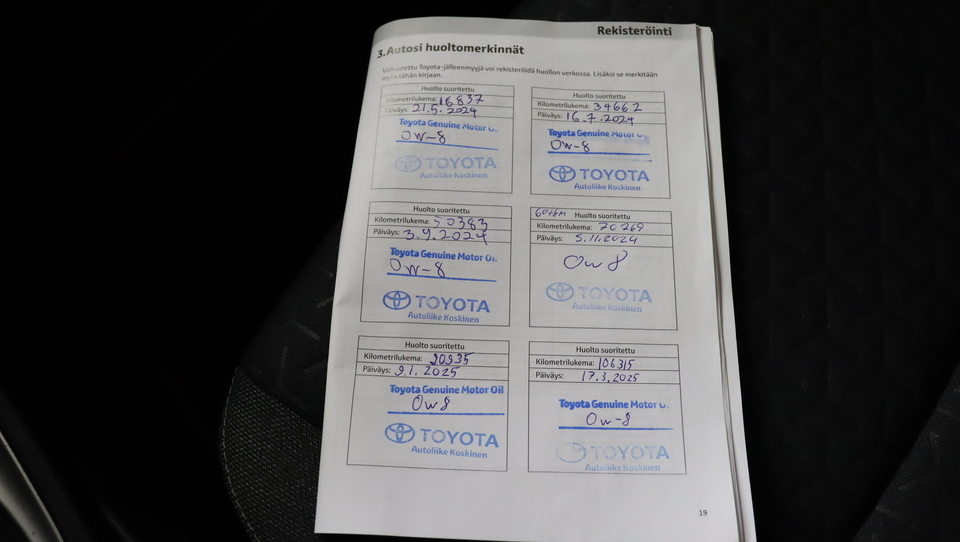 Rekisteröinti
3. Autosi huoltomerkinnät
Valtuutettu Toyota-jälleenmyyjä voi rekisteröidä huollon verkossa. Lisäksi se merkitään
myös tähän kirjaan.
Huolto suoritettu
Kilometrilukema: 16837
Päiväys: 21.5.2024
Toyota Genuine Motor O.
0W-8
TOYOTA
Autoliike Koskinen
Huolto suoritettu
Kilometrilukema: 34662
Päiväys: 16.7.2024
Toyota Genuine Motor O.
0W-8
TOYOTA
Autoliike Koskinen
Huolto suoritettu
Kilometrilukema: 50383
Päiväys: 3.9.2024
Toyota Genuine Motor Oi.
0W-8
TOYOTA
Autoliike Koskinen
Huolto suoritettu
Kilometrilukema: 70769
Päiväys: 5.11.2024
0W 8
TOYOTA
Autoliike Koskinen
Huolto suoritettu
Kilometrilukema: 90935
Päiväys: 9.1.2025
Toyota Genuine Motor Oil
0W8
TOYOTA
Autoliike Koskinen
Huolto suoritettu
Kilometrilukema: 106315
Päiväys: 17.3.2025
Toyota Genuine Motor O.
0W-8
TOYOTA
Autoliike Koskinen
19